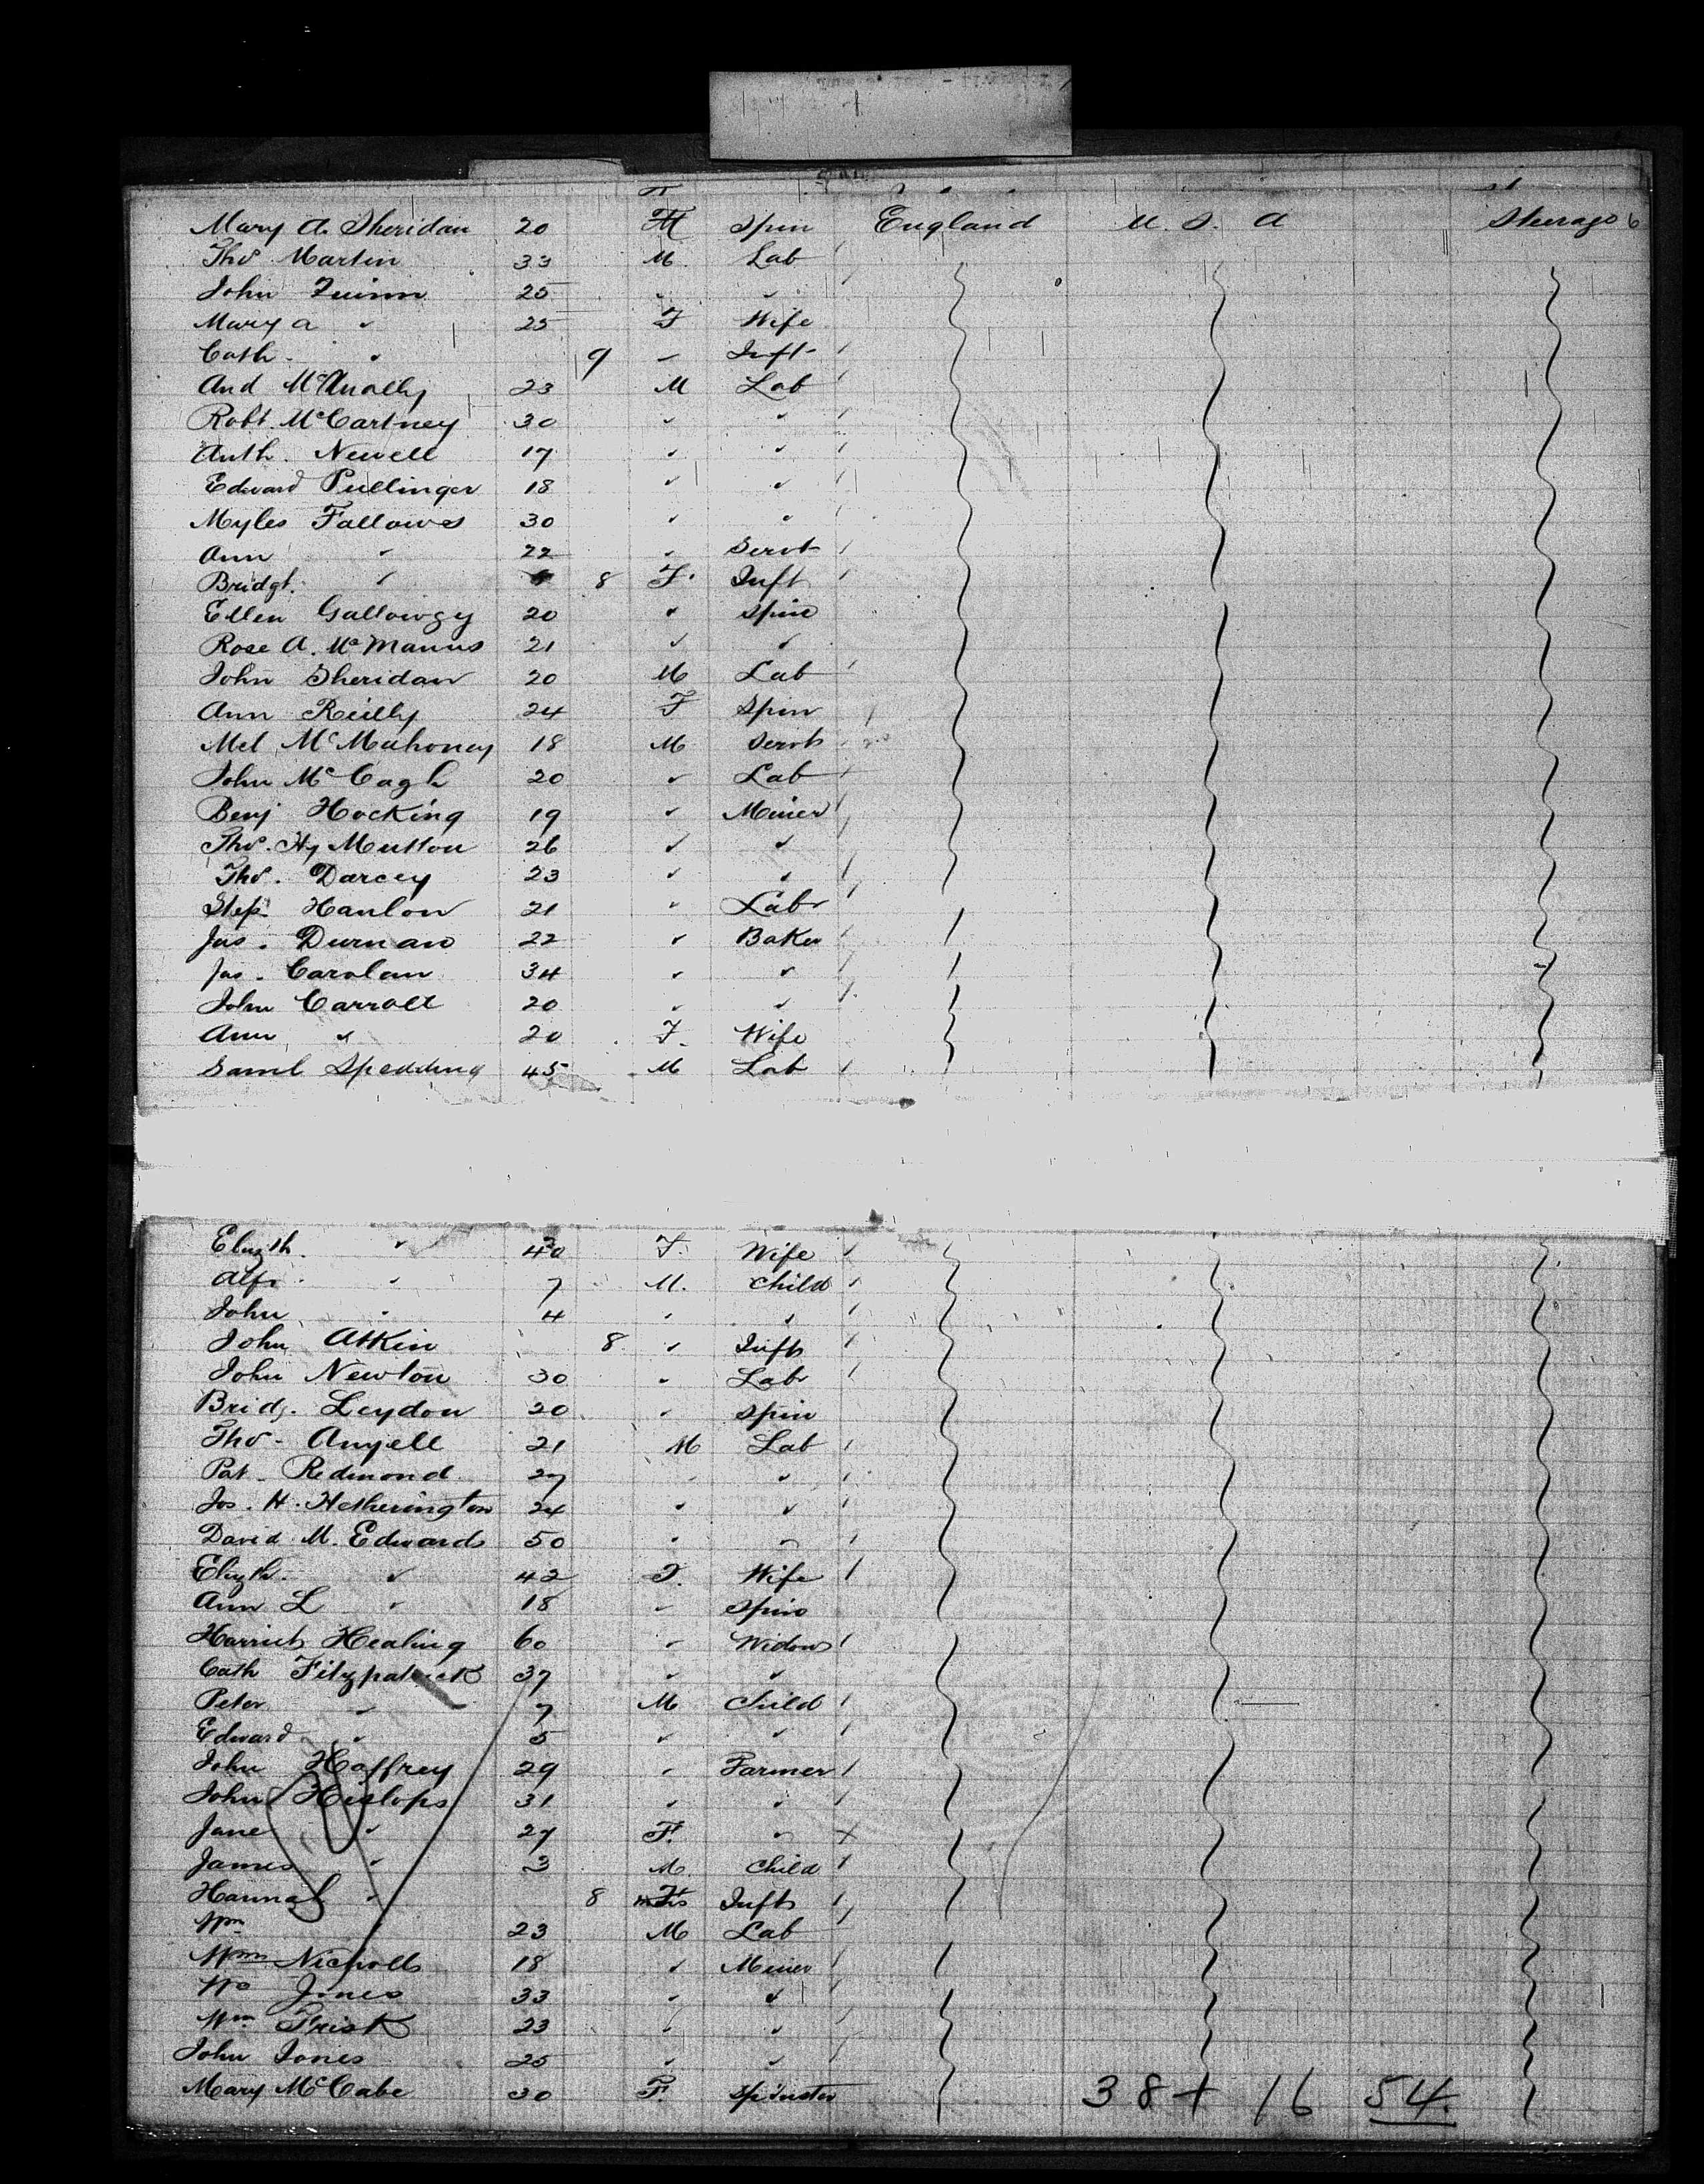 Mary A. Sheridan 20 F Spin England U. S. A Steerage 6
Thos Martin 33 M. Lab
John Quinn 25 " "
Mary A " 25 F Wife
Cath. " 9 " Inft
And McAnally 23 M Lab
Robt. McCartney 30 " "
Anth. Newell 17 " "
Edward Pullinger 18 " "
Myles Fallows 30 " "
Ann " 22 " Servt
Bridgt. " 8 F. Inft
Ellen 20 " Spin
Rose A. McManus 21 " "
John Sheridan 20 M Lab
Ann Reilly 24 F Spin
Mcl McMahoney 18 M Servt
John McCagh 20 " Lab
Benj Hocking 19 " Miner
Thos. Hy Mutton 26 " "
Thos. Darcey 23 " "
Step. Hanlon 21 " Labr
Jas. Durnan 22 " Baker
Jas. Carolan 34 " "
John Carroll 20 " "
Ann " 20 F. Wife
Saml Spedding 45 M Lab
Elizth. " 40 F. Wife
Alfr. " 7 M. Child
John " 4 " "
John Atkin 8 " Inft
John Newton 30 " Labr
Bridg. Leydon 20 " Spin
Thos. Angell 21 M Lab
Pat. Redmond 27 " "
Jos. H. Hetherington 24 " "
David M. Edwards 50 " "
Elizth. " 42 F. Wife
Ann L " 18 " Spin
Harriet Healing 60 " Widow
Cath Fitzpatrick 37 " "
Peter " 7 M Child
Edward " 5 " "
John Haffrey 29 " Farmer
John Hislops 31 " "
Jane " 27 F. "
James " 3 M. Child
Hannah " 8 Inft
Wm 23 M Lab
Wm Nicholls 18 " Miner
Wm Jones 33 " "
Wm Frisk 23 " "
John Jones 25 " "
Mary McCabe 30 F. Spinster
38 + 16 54.